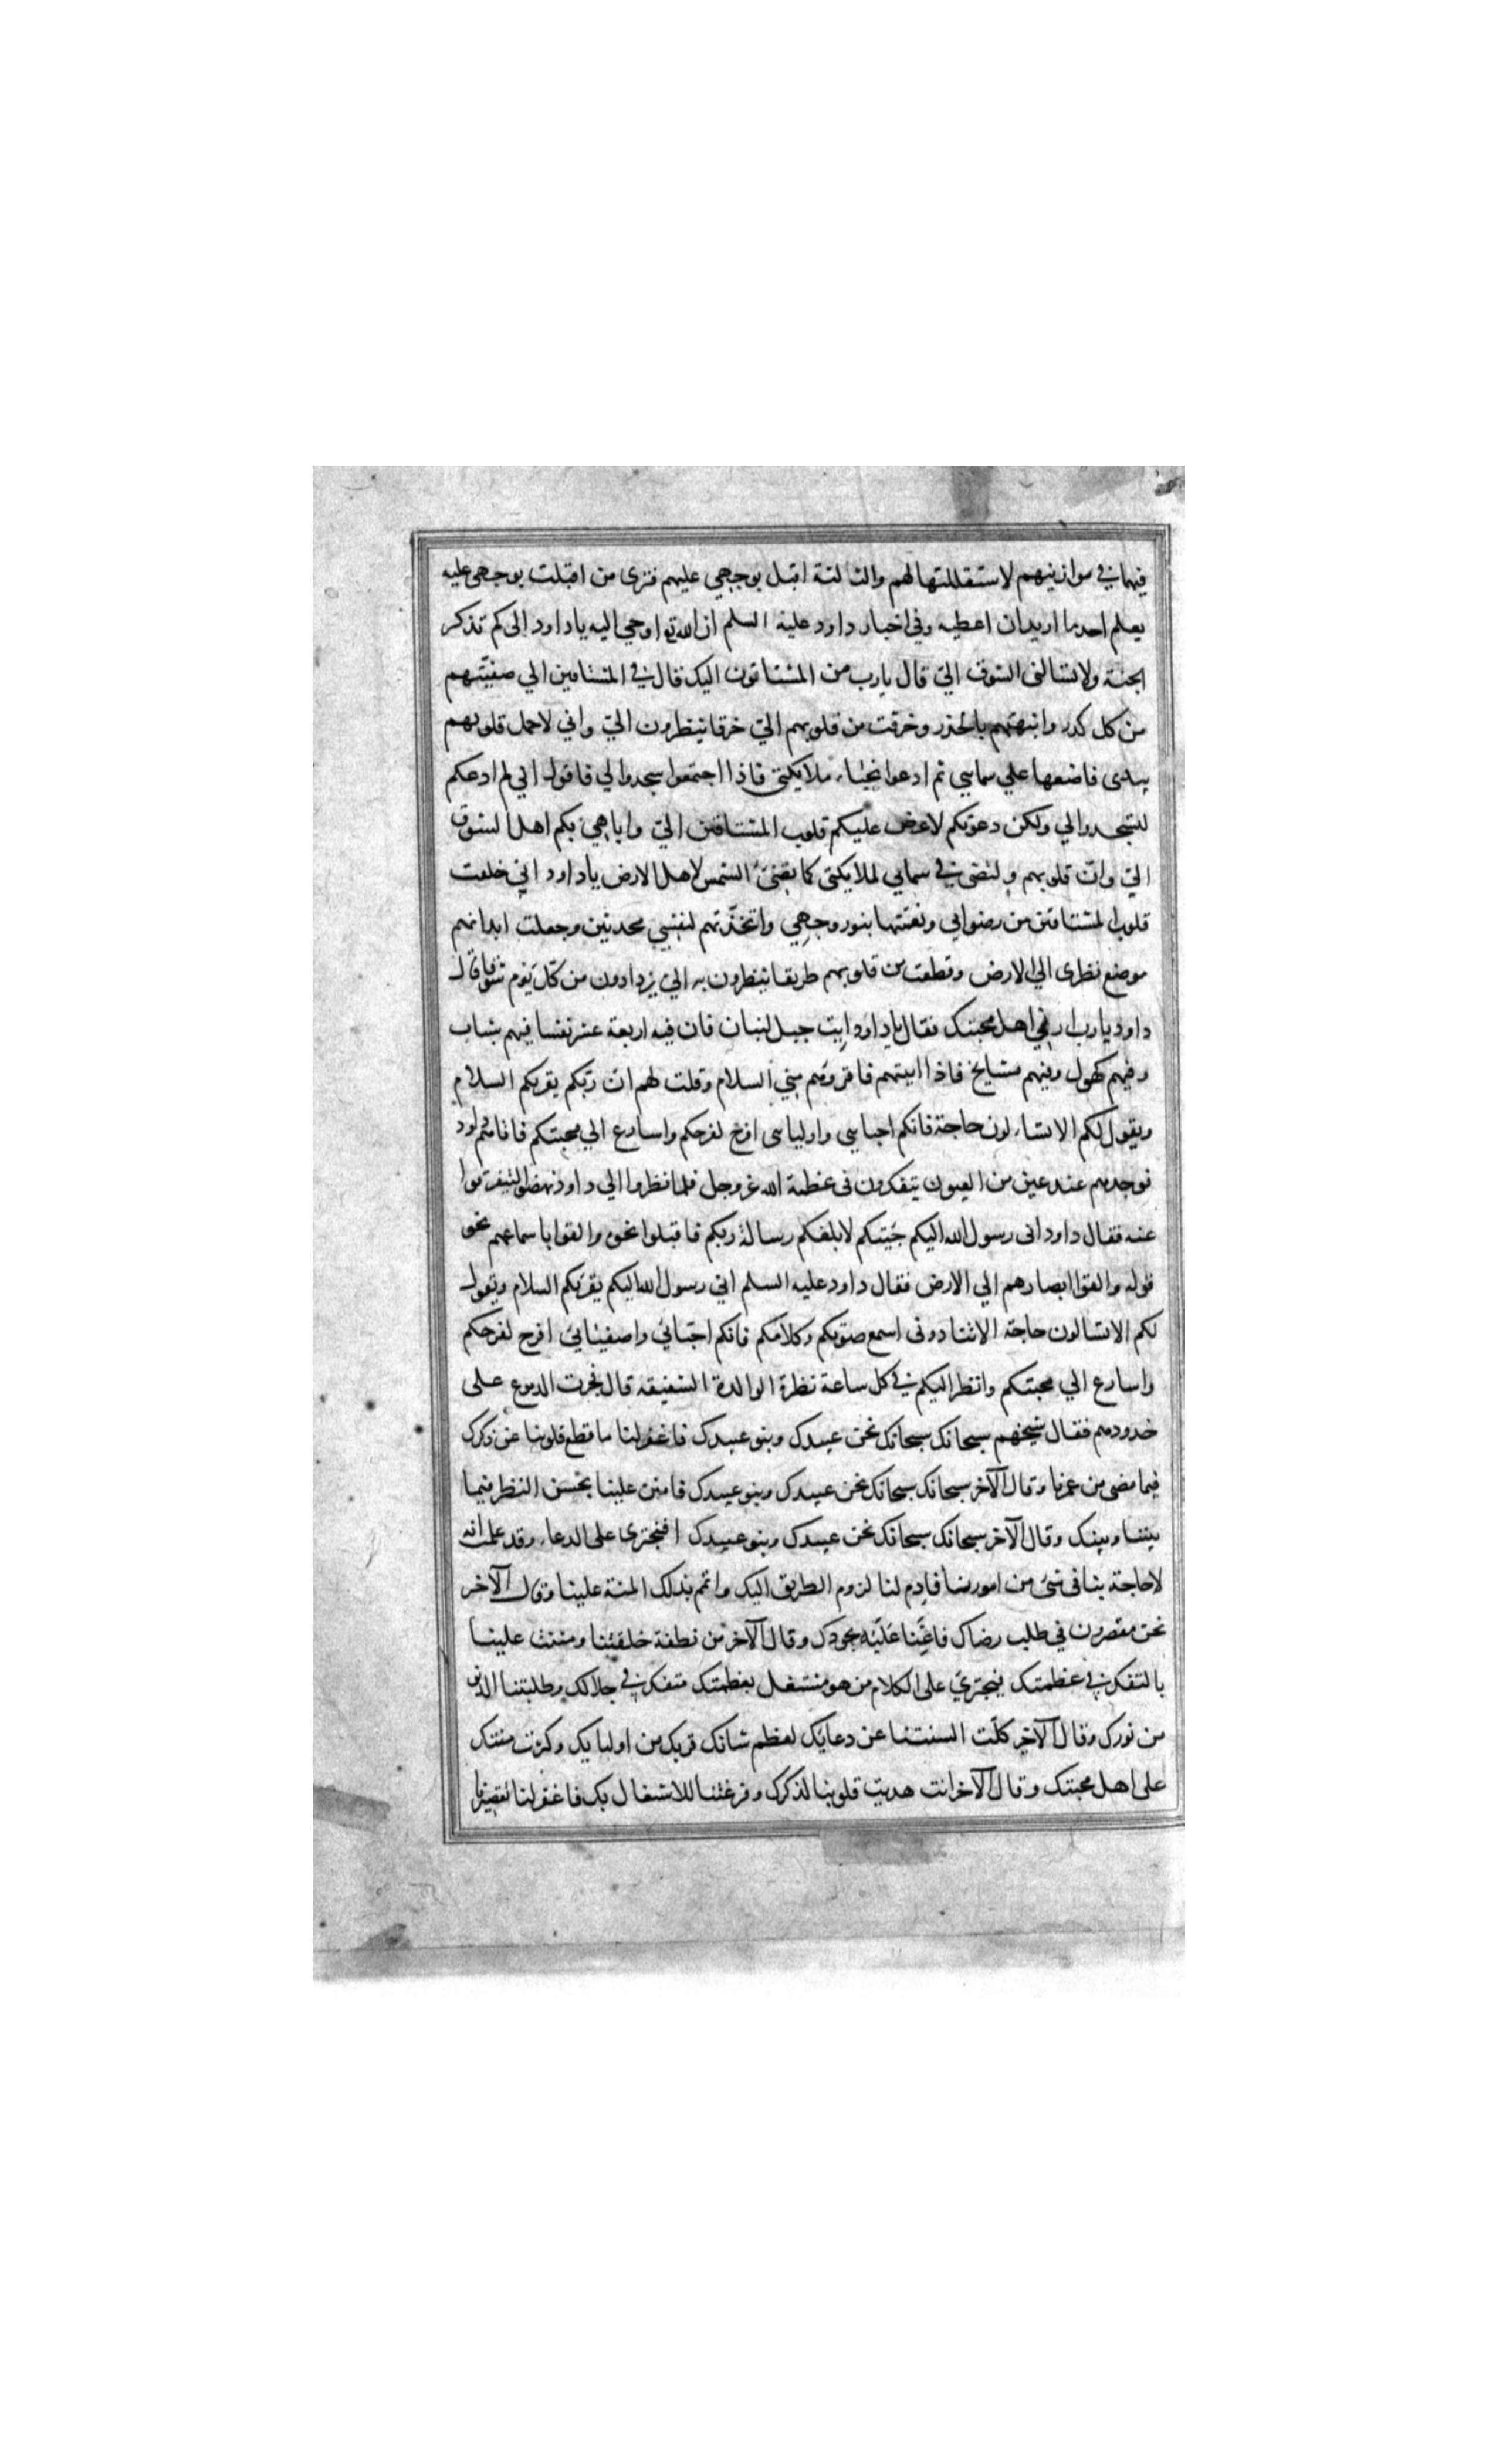 فيها في موازينهم لاستقللتها لهم والثالثة اقبل بوجهي عليهم فترى من اقبلت بوجهي عليه
يعلم احد ما اريد ان اعطيه وفي اخبار داود عليه السلم ان الله تع اوحي اليه يا داود الى كم تذكر
الجنة ولا تسالنى الشوق الي قال يارب من المشتاقون اليك قال في المشتاقين الي صفيتهم
من كل كدر وانبهتهم بالحذر وخرقت من قلوبهم الي خرقا ينظرون الي واني لاحمل قلوبهم
بيدى فاضعها علي سمايي ثم ادعوا نجباء ملايكتى فاذا اجتمعوا سجدوا لي فاقول اني لم ادعكم
لتسجدوا لي ولكن دعوتكم لاعرض عليكم قلوب المشتاقين الي واباهي بكم اهل الشوق
الي وان قلوبهم ولتضى في سمايي لملايكتى كما تضئ الشمس لاهل الارض يا داود اني خلقت
قلوب المشتاقين من رضوانى ونعمتها بنور وجهي واتخذتهم لنفسي محدثين وجعلت ابدانهم
موضع نظرى الي الارض وقطعت من قلوبهم طريقا ينظرون به الي يزدادون من كل يوم شوقا قال
داود يارب ارني اهل محبتك فقال يا داود ايت جبل لبنان فان فيه اربعة عشر نفسا فيهم شباب
وفيهم كهول وفيهم مشايخ فاذا اتيتهم فاقروهم مني السلام وقلت لهم ان ربكم يقريكم السلام
ويقول لكم الا تساءلون حاجة فانكم احبايي واوليايى افرح لفرحكم واسارع الي محبتكم فاتاهم داود
فوجدهم عند عين من العيون يتفكرون فى عظمة الله عز وجل فلما نظروا الي داود نهضوا ليتفرقوا
عنه فقال داود انى رسول الله اليكم جئتكم لابلغكم رسالة ربكم فاقبلوا نحوه والقوا باسماعهم نحو
قوله والقوا ابصارهم الي الارض فقال داود عليه السلم اني رسول الله اليكم يقريكم السلام ويقول
لكم الا تسالون حاجة الا تنادونى اسمع صوتكم وكلامكم فانكم احبائي واصفيائي افرح لفرحكم
واسارع الي محبتكم وانظر اليكم في كل ساعة نظرة الوالدة الشفيقة قال فجرت الدموع على
خدودهم فقال شيخهم سبحانك سبحانك نحن عبيدك وبنو عبيدك فاغفر لنا ما قطع قلوبنا عن ذكرك
فيما مضى من عمرنا وقال الآخر سبحانك سبحانك نحن عبيدك وبنو عبيدك فامنن علينا بحسن النظر فيما
بيننا وبينك وقال الآخر سبحانك سبحانك نحن عبيدك وبنو عبيدك افنجترى على الدعاء وقد علمت انه
لا حاجة بنا فى شئ من امورنا فادم لنا لزوم الطريق اليك واتم بذلك المنة علينا وقال الآخر
نحن مقصرون في طلب رضاك فاعنا عليه بجودك وقال الآخر من نطفة خلقتنا ومننت علينا
بالتفكر في عظمتك فيجتري على الكلام من هو مشتغل بعظمتك متفكر في جلالك وطلبتنا الدنو
من نورك وقال الآخر كلت السنتنا عن دعايك لعظم شانك قربك من اوليايك وكثرت منتك
على اهل محبتك وقال الآخر انت هديت قلوبنا لذكرك وفرغتنا للاشتغال بك فاغفر لنا تقصيرنا